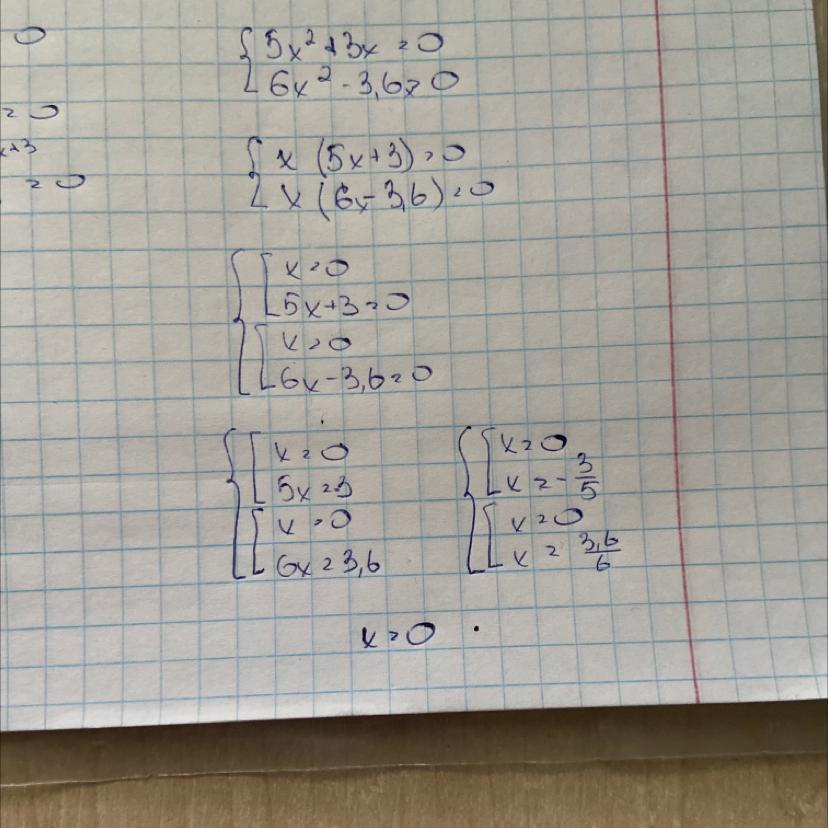 0
= 0
x+3
= 0
{ 5x² + 3x = 0
6x² - 3,6x = 0
{ x (5x+3) = 0
x (6x - 3,6) = 0
{ [ x = 0
5x+3 = 0
[ x = 0
6x - 3,6 = 0
{ [ x = 0
5x = 3
[ x = 0
6x = 3,6
{ [ x = 0
x = - 3/5
[ x = 0
x = 3,6/6
x = 0 .